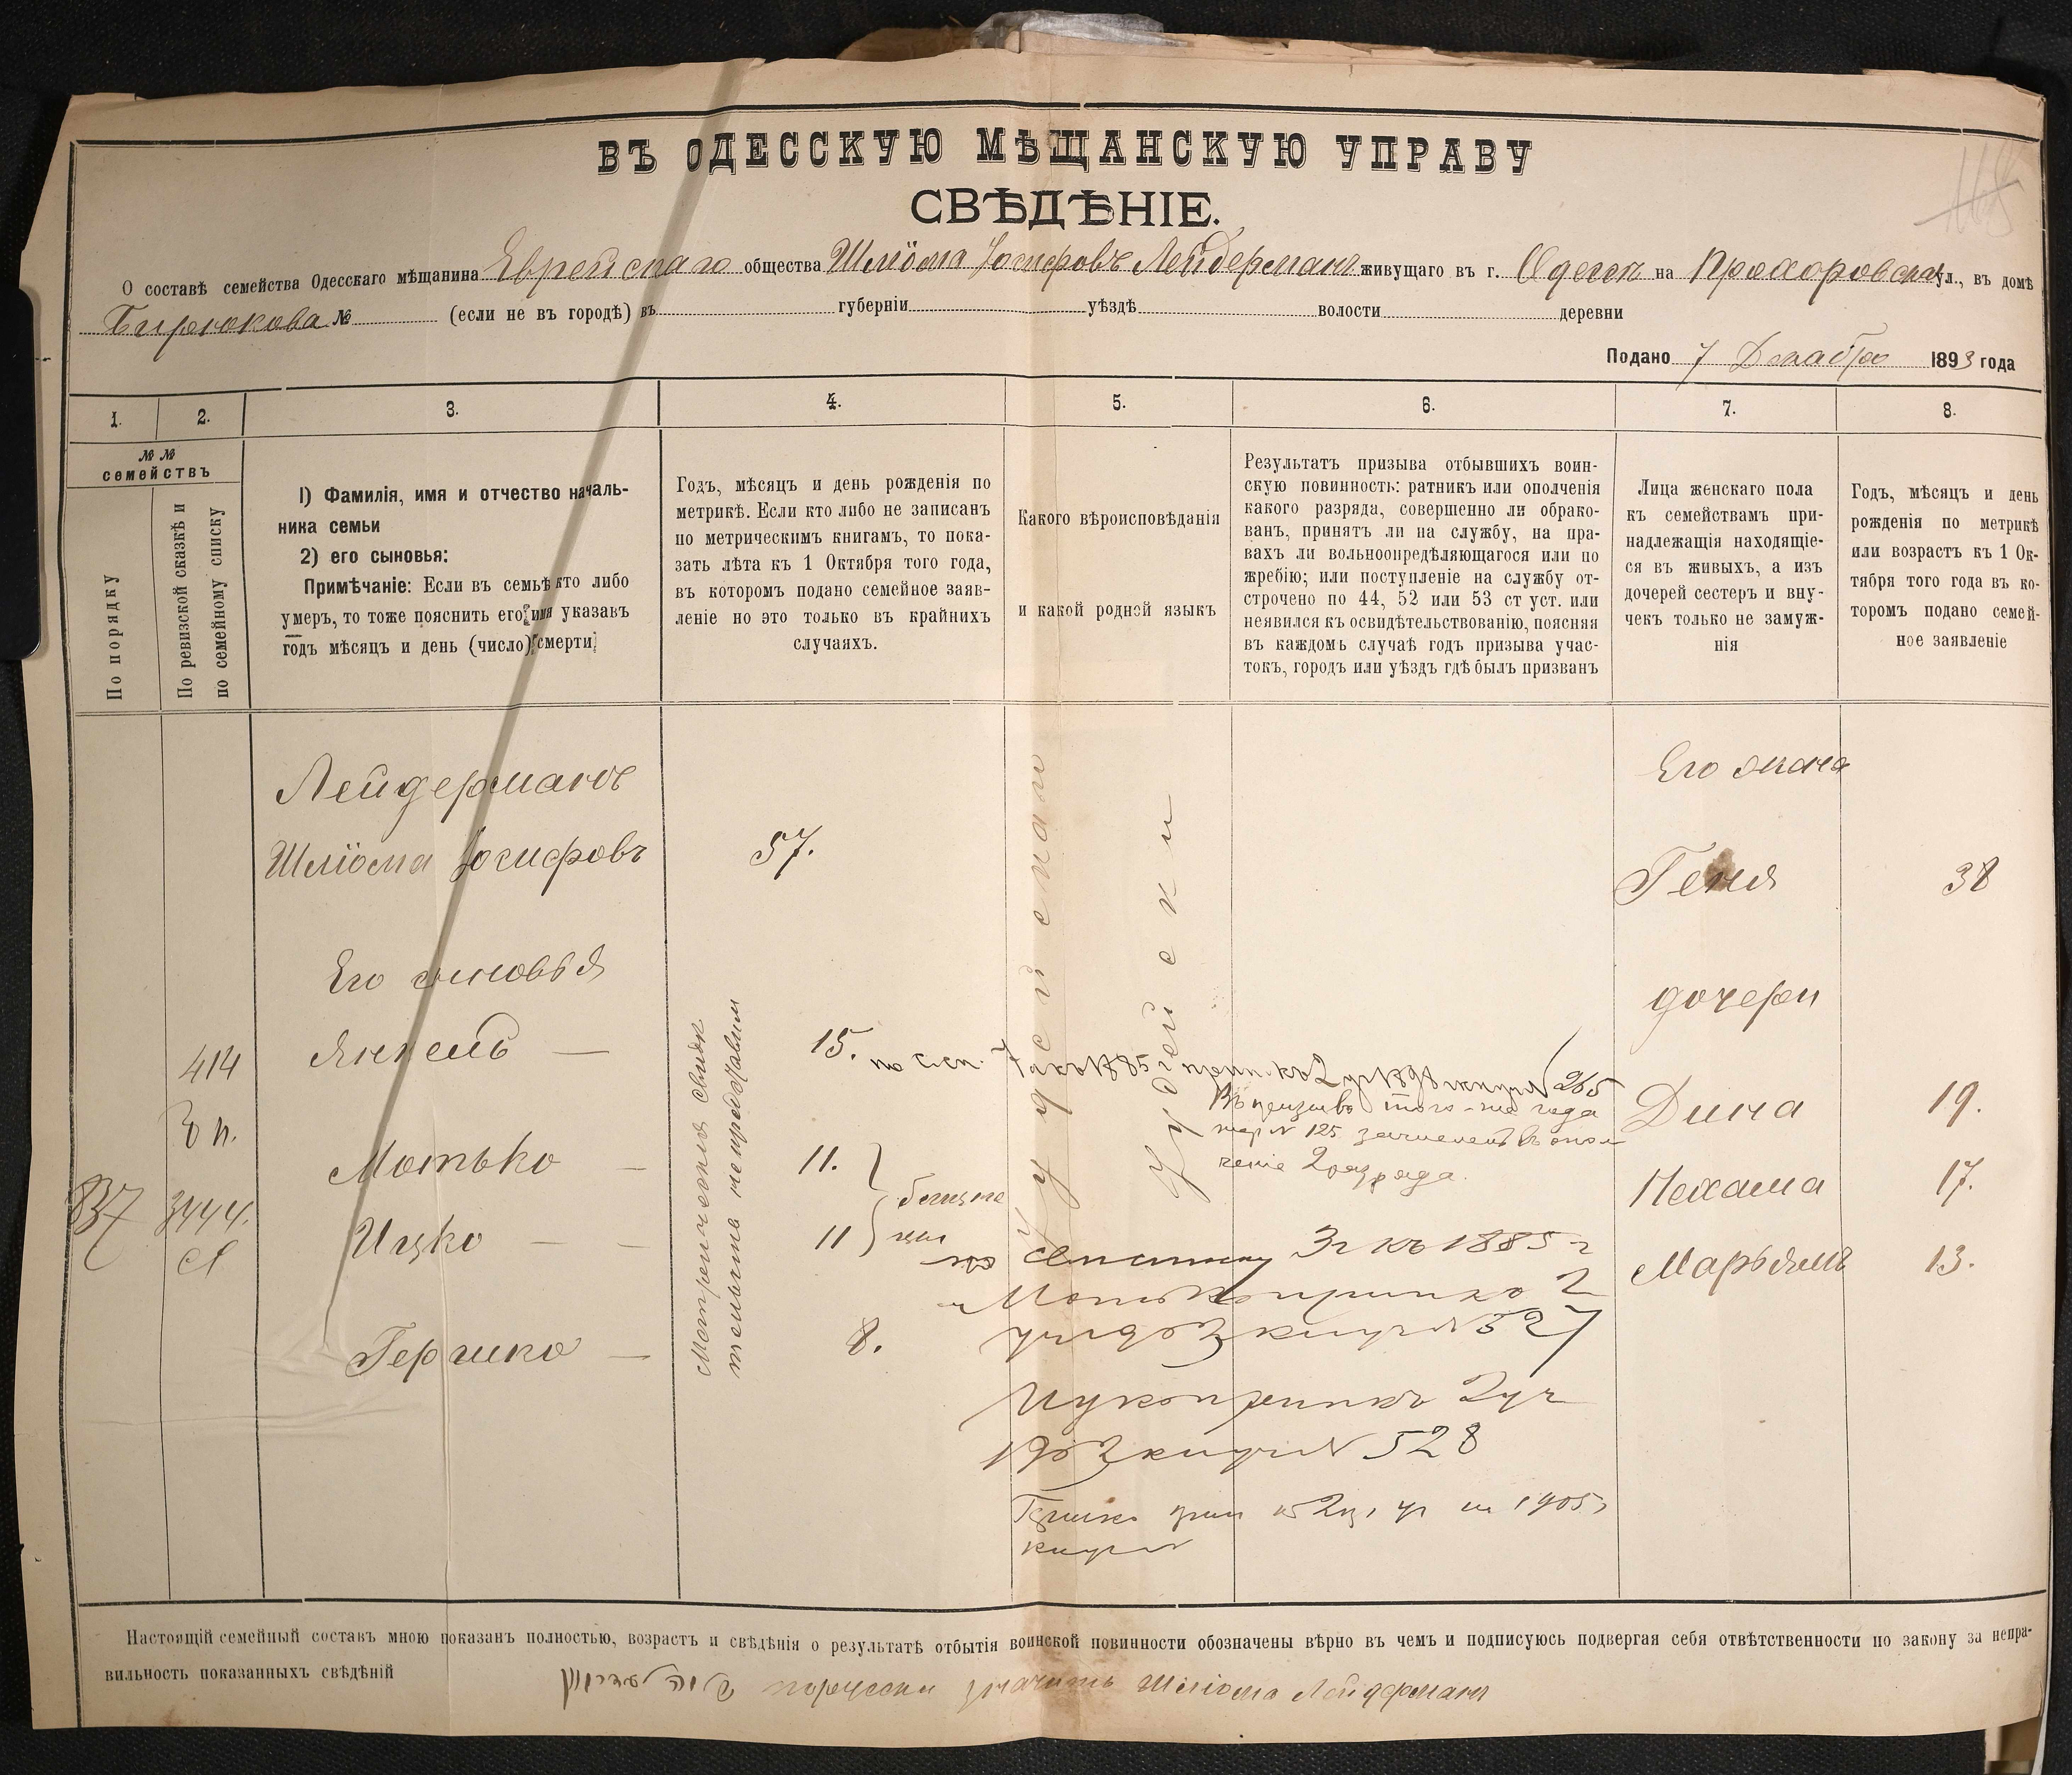 ВЪ ОДЕССКУЮ МѢЩАНСКУЮ УПРАВУ
СВѢДѢНІЕ.
О составѣ семейства Одесскаго мѣщанина Еврейскаго общества Шлiома Іосифовъ Лейдерманъ живущаго въ г. Одессѣ на Прохоровской ул., въ домѣ
Бирюкова № (если не въ городѣ) въ губерніи уѣздѣ волости деревни
Подано 7 Декабря 1893 года
1. 2. 3. 4. 5. 6. 7. 8.
№ №
семействъ
По порядку
По ревизской сказкѣ и
по семейному списку
1) Фамилія, имя и отчество началь-
ника семьи
2) его сыновья:
Примѣчаніе: Если въ семьѣ кто либо
умеръ, то тоже пояснить его имя указавъ
годъ мѣсяцъ и день (число) смерти
Годъ, мѣсяцъ и день рожденія по
метрикѣ. Если кто либо не записанъ
по метрическимъ книгамъ, то пока-
зать лѣта къ 1 Октября того года,
въ котором подано семейное заяв-
леніе но это только въ крайнихъ
случаяхъ.
Какого вѣроисповѣданія
и какой родной языкъ
Результатъ призыва отбывшихъ воин-
скую повинность: ратникъ или ополченія
какого разряда, совершенно ли обрако-
ванъ, принятъ ли на службу, на пра-
вахъ ли вольноопредѣляющагося или по
жребію; или поступленіе на службу от-
строчено по 44, 52 или 53 ст уст. или
неявился къ освидѣтельствованію, поясняя
въ каждомъ случаѣ годъ призыва учас-
токъ, городъ или уѣздъ гдѣ былъ призванъ
Лица женскаго пола
къ семействамъ при-
надлежащія находящіе-
ся въ живыхъ, а изъ
дочерей сестеръ и вну-
чекъ только не замуж-
нія
Годъ, мѣсяцъ и день
рожденія по метрикѣ
или возрастъ къ 1 Ок-
тября того года въ ко-
торомъ подано семей-
ное заявленіе
Лейдерманъ
Шлiома Іосифовъ 57.
Его жена
Геня 38
Его сыновья
дочери
414
Янкель — 15.
265
Въ призывѣ того-же года
жер № 125 зачисленъ въ опол
ченіе 2 разряда.
Дина 19.
Мотько — 11.
Нехама 17.
837
3444.
Ицко — — 11
близне
цы
Марьямъ 13.
Гершко — 8.
Метрическихъ
не представилъ
Іудейскаго
Іудейски
1885 г
№ 527
2 уч
№ 528
1905
Настоящій семейный составъ мною показанъ полностью, возрастъ и свѣдѣнія о результатѣ отбытія воинской повинности обозначены вѣрно въ чемъ и подписуюсь подвергая себя отвѣтственности по закону за непра-
вильность показанныхъ свѣдѣній
порусски значитъ Шлiома Лейдерманъ